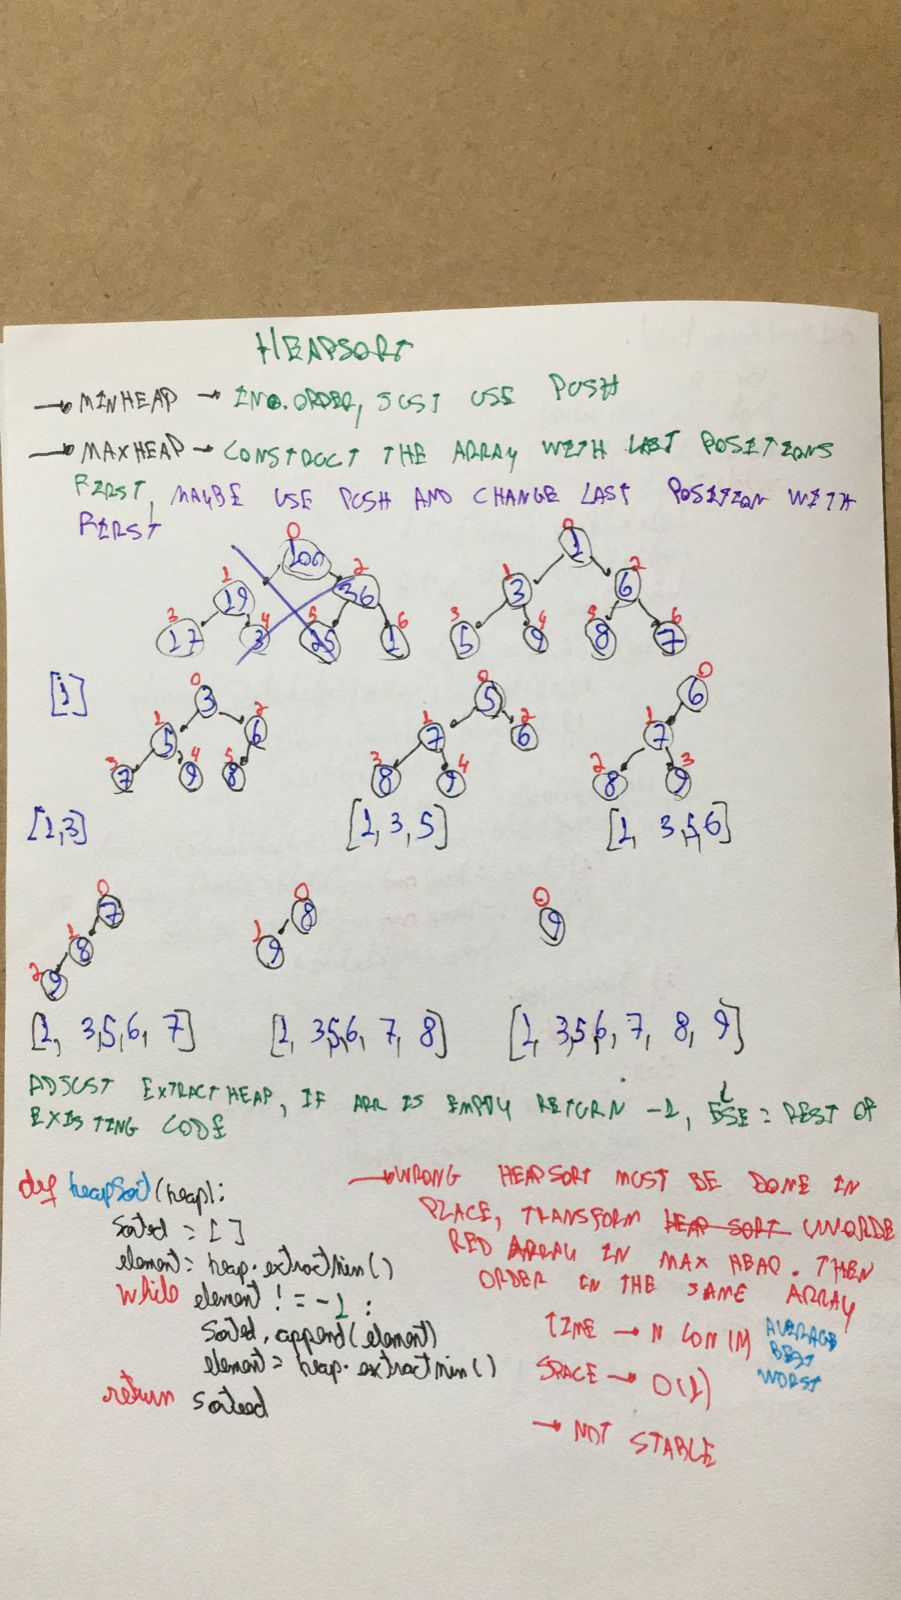 HEAPSORT
→ MINHEAP → INC. ORDER, JUST USE PUSH
→ MAXHEAP → CONSTRUCT THE ARRAY WITH LAST POSITIONS
FIRST, MAYBE USE PUSH AND CHANGE LAST POSITION WITH
FIRST
0 0
100 1
1 2 1 2
19 36 3 6
3 4 5 6 3 4 5 6
17 3 25 1 5 9 8 7
[1]
0 0 0
3 5 6
1 2 1 2 1
5 6 7 6 7
3 4 5 3 4 2 3
7 9 8 8 9 8 9
[1,3] [1, 3, 5] [1, 3,5,6]
0 0 0
7 8 9
1 1
8 9
2
9
[1, 3,5,6, 7] [1, 3,5,6, 7, 8] [1, 3,5,6, 7, 8, 9]
ADJUST EXTRACT HEAP, IF ARR IS EMPTY RETURN -1, ELSE = REST OF
EXISTING CODE
def heapSort(heap):
sorted = []
element = heap.extractMin()
while element != -1:
sorted.append(element)
element = heap.extractMin()
return sorteed
→ WRONG HEAPSORT MUST BE DONE IN
PLACE, TRANSFORM HEAP SORT UNORDE
RED ARRAY IN MAX HEAP. THEN
ORDER IN THE SAME ARRAY
TIME → N LON (M) AVERAGE
BEST
WORST
SPACE → O(1)
→ NOT STABLE